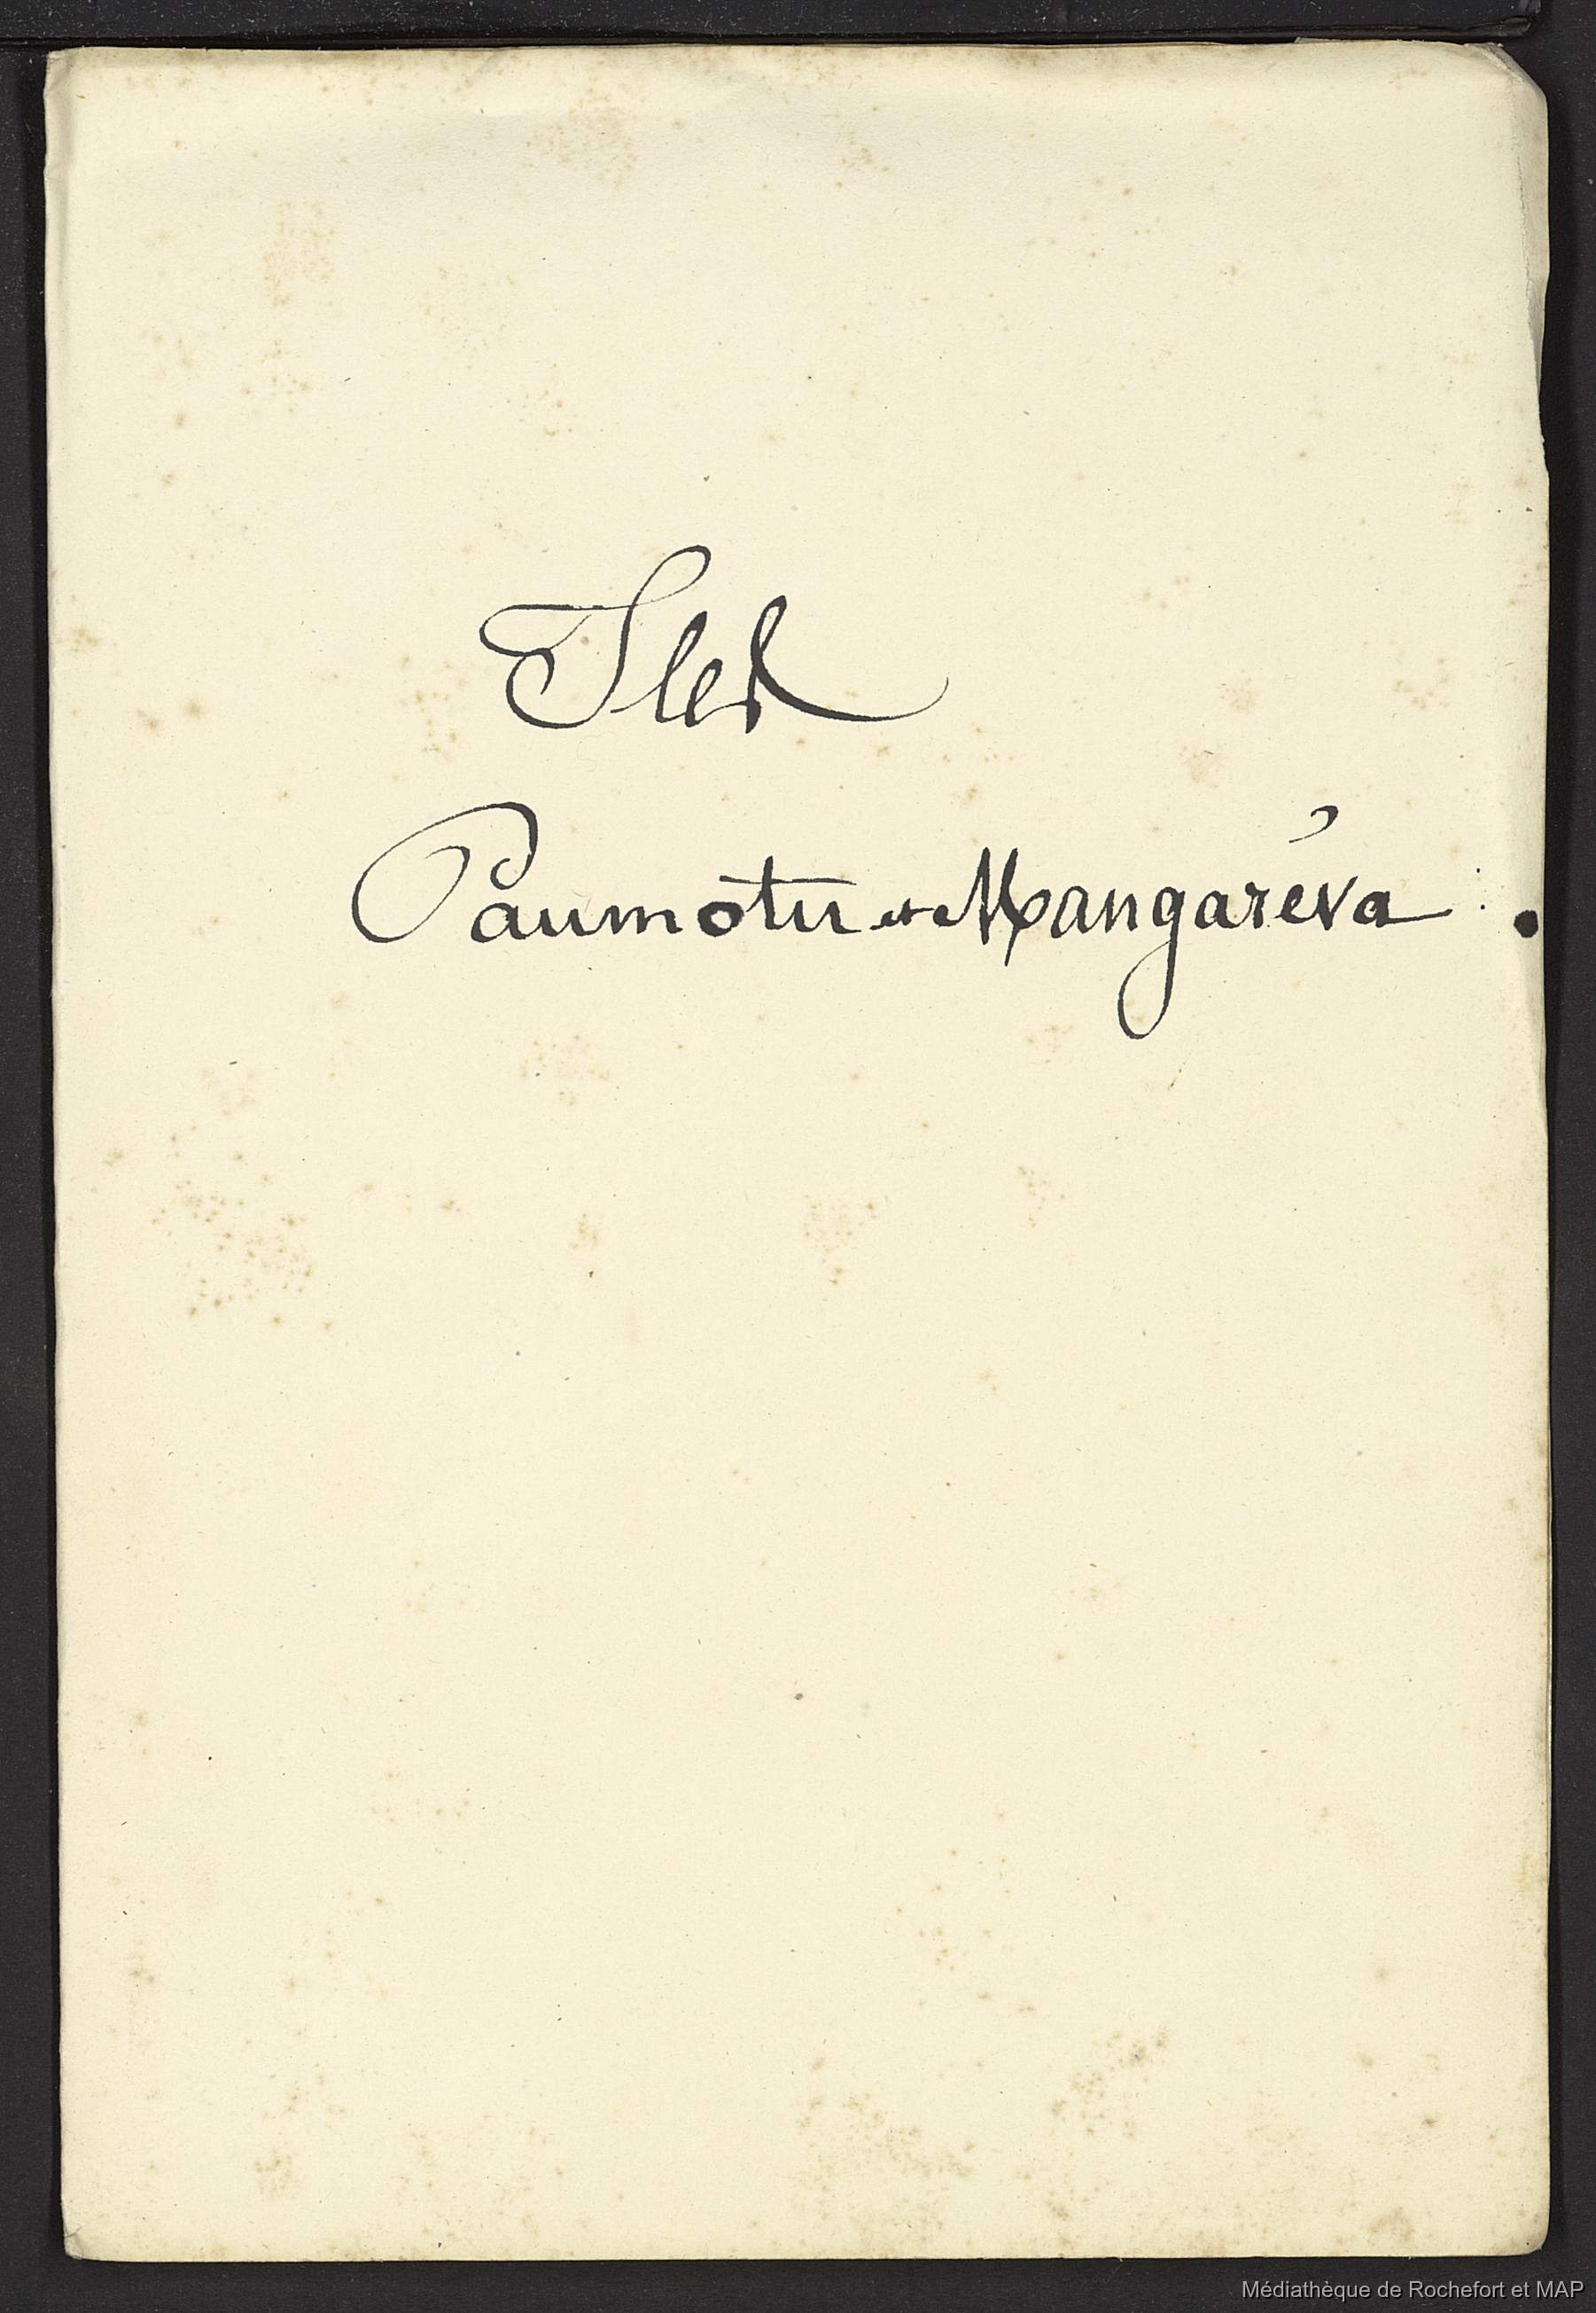 Iles
Paumotu et Mangaréva
Médiathèque de Rochefort et MAP